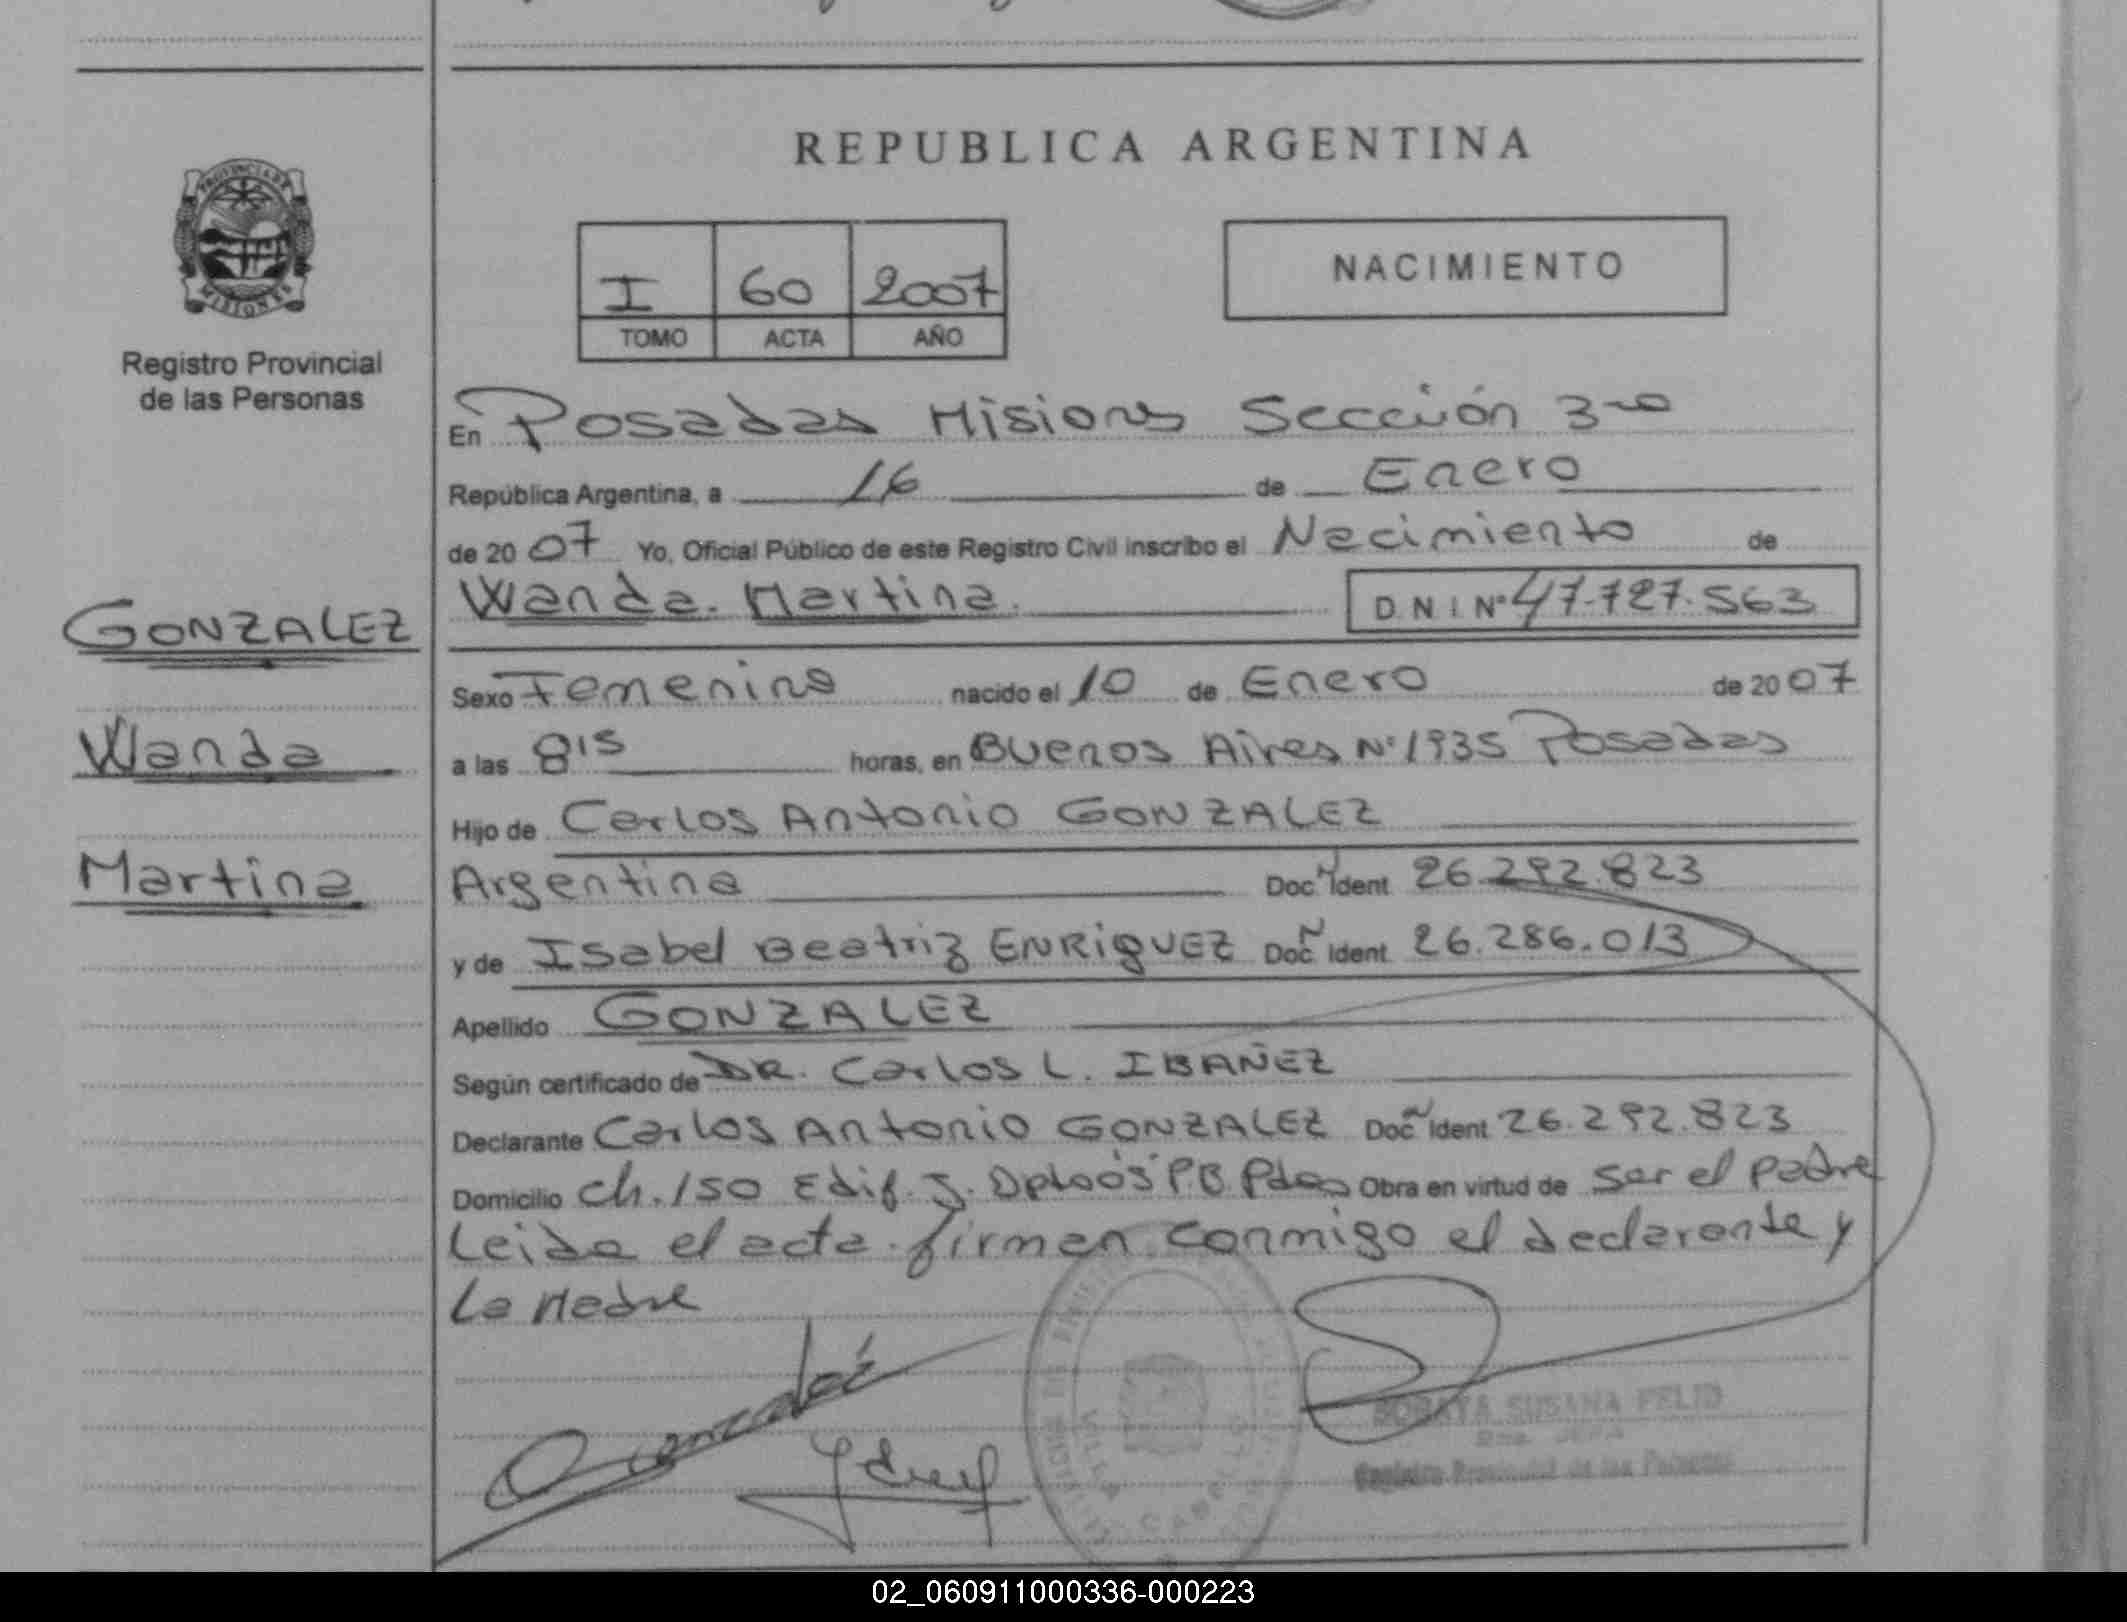 REPUBLICA ARGENTINA
PROVINCIA DE MISIONES
I 60 2007
TOMO ACTA AÑO
NACIMIENTO
Registro Provincial
de las Personas
En Posadas Misiones Sección 3ra
República Argentina, a 16 de Enero
de 2007 Yo, Oficial Público de este Registro Civil inscribo el Nacimiento de
Wanda Martina D N I Nº 47.727.563
GONZALEZ
Wanda
Martina
Sexo Femenino nacido el 10 de Enero de 2007
a las 8 15 horas, en Buenos Aires Nº 1935 Posadas
Hijo de Carlos Antonio GONZALEZ
Argentina Doc. N Ident 26.292.823
y de Isabel Beatriz ENRIQUEZ Doc. N Ident 26.286.013
Apellido GONZALEZ
Según certificado de DR. Carlos L. IBAÑEZ
Declarante Carlos Antonio GONZALEZ Doc. N Ident 26.292.823
Domicilio ch. 150 Edif. J. Dpto 05 PB Pdas Obra en virtud de ser el padre
Leida el acta firman conmigo el declarante y
La Madre
Gonzalez
SORAYA SUSANA FELID
JEFA
Registro Provincial de las Personas
VILLA CABELLO
02_060911000336-000223